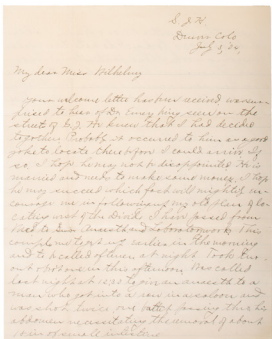 My dear Miss Wilhelmy
your welcome letter has been received, was sur-
prised to hear of Dr. being seen on the
street of G.J. He knew that I had decided
to go there Probably it occurred to him as a
joke to locate there before I could arrive. If
so, I hope he may not be disappointed. He is
married and needs to make some money. I hope
he may succeed which fact will mightily en-
courage me in following my old plan of lo-
cating west of the divide. I have passed from
to and This
compels me to get up earlier in the morning
and to be called often at night. Took two
out of this afternoon. Was called
last night at 12:30 to give an to a
man who got into a row in a saloon and
was shot twice one bullet passing thru the
abdomen necessitating the removal of about
of small intestine